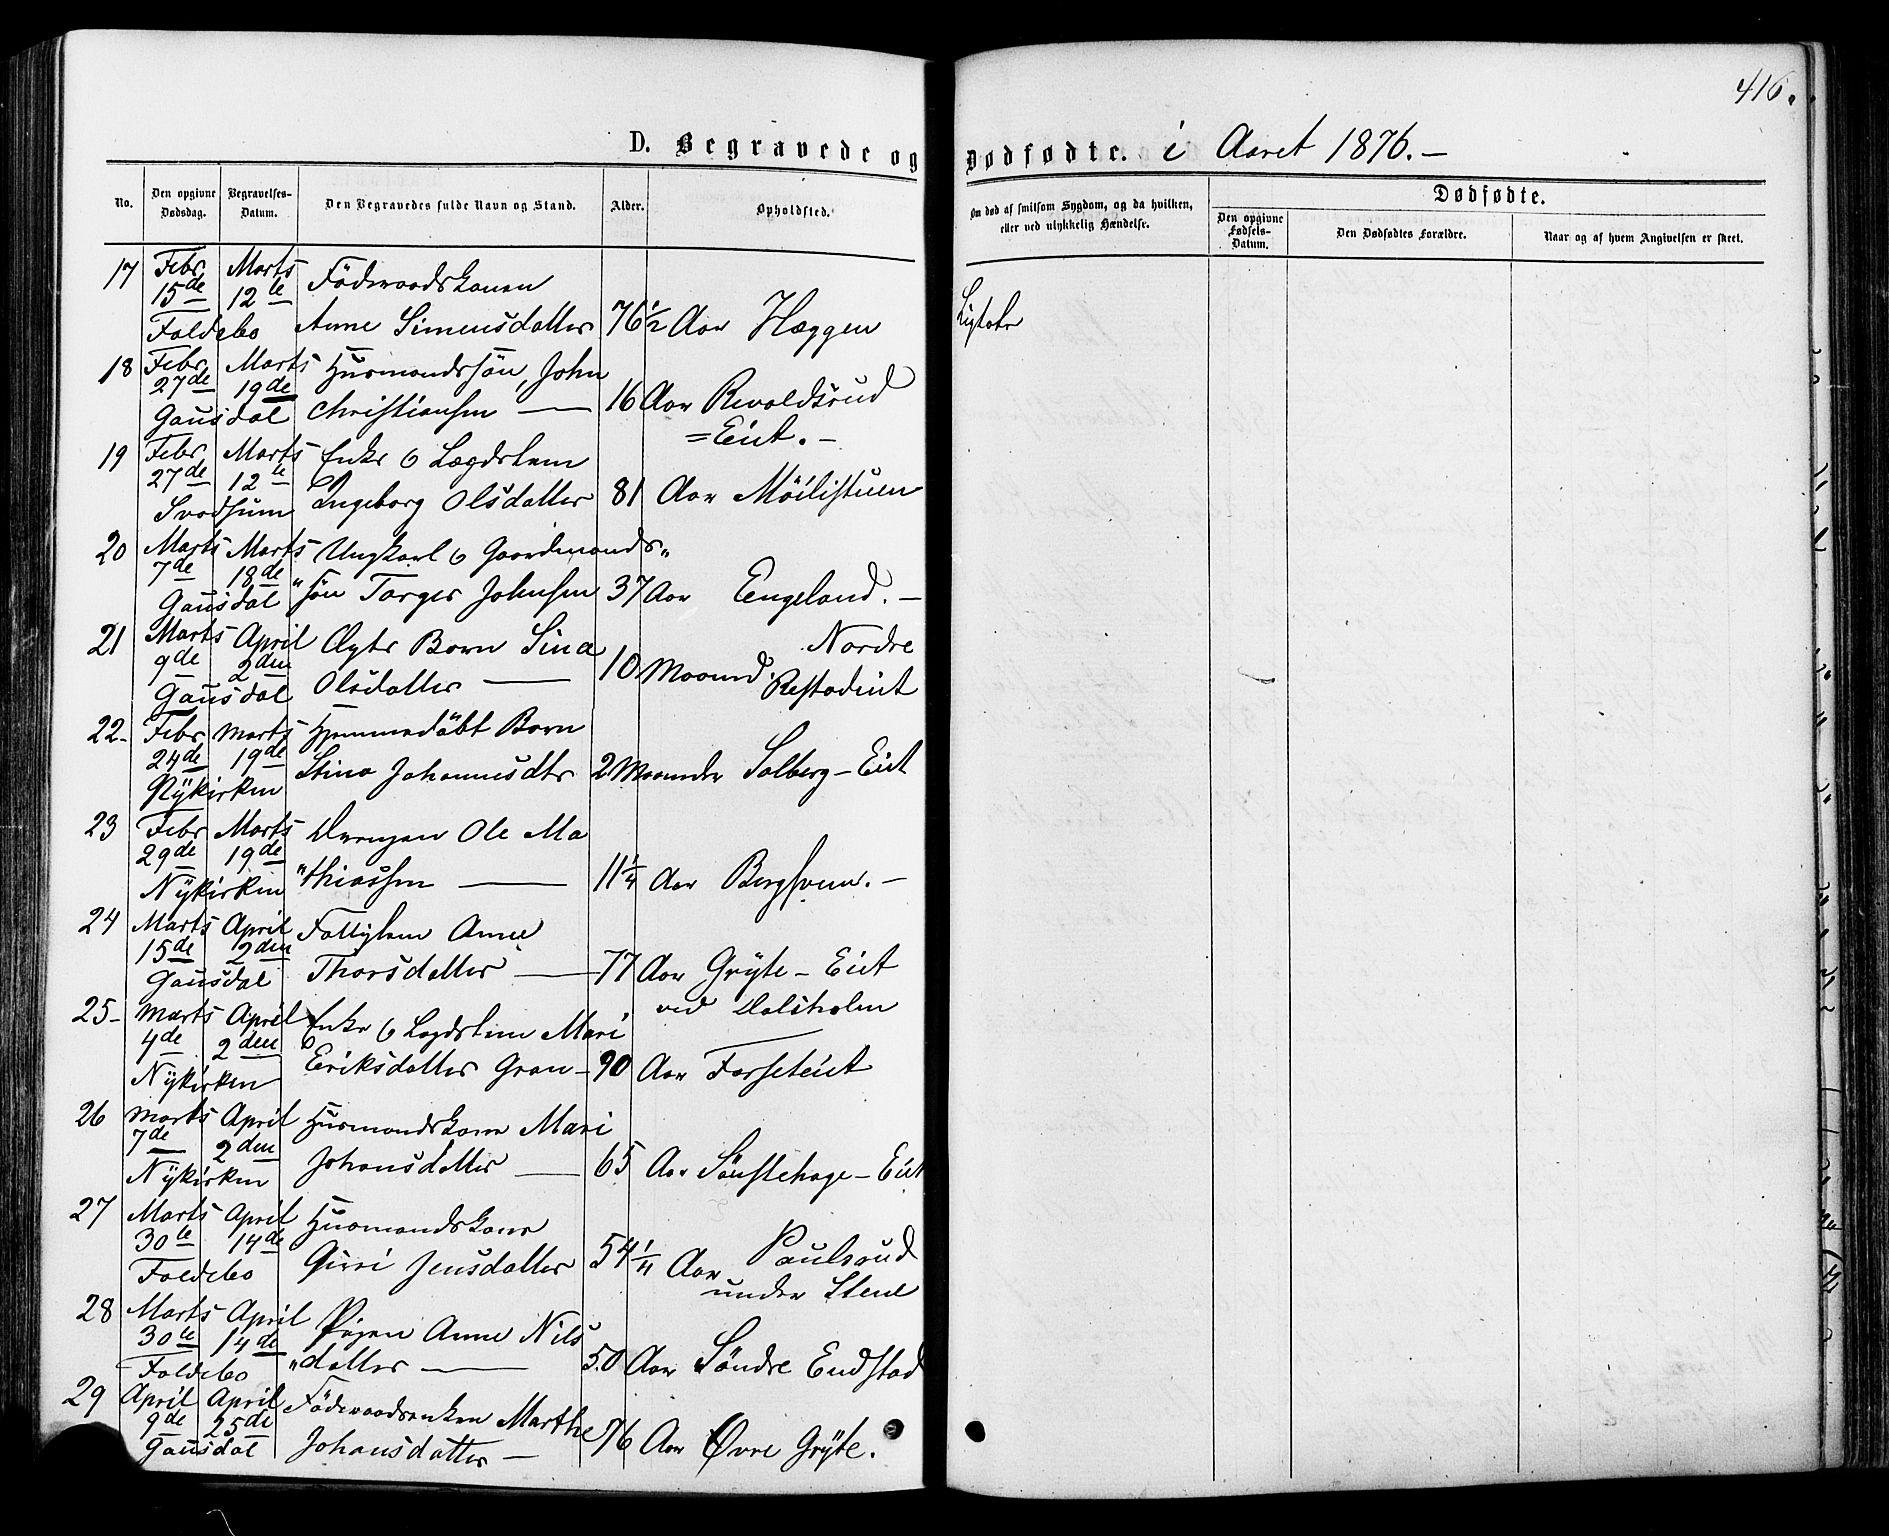 416.
D. Begravede og Dødfødte. i Aaret 1876.—
No.
Den opgivne Dødsdag.
Begravelses-Datum.
Den Begravedes fulde Navn og Stand.
Alder.
Opholdsted.
Om død af smitsom Sygdom, og da hvilken, eller ved ulykkelig Hændelse.
Dødfødte.
Den opgivne Fødsels-Datum.
Den Dødfødtes Forældre.
Naar og af hvem Angivelsen er skeet.
17 Febr Marts Föderaadskonen
15de 12te
Foldebo Anne Simensdatter 76½ Aar Hæggen
18 Febr Marts Husmandssön, John
27de 19de
Gausdal Christiansen — 16 Aar Revoldsrud
=Eiet.—
19 Febr Marts Enke o Lægdslem
27de 12te
Svadsum Ingeborg Olsdatter 81 Aar Möilistuen
20 Marts Marts Ungkarl o Gaardmands„
7de 18de
Gausdal "sön Torger Johnsen 37 Aar Engeland.—
21 Marts April Ægte Barn Sina Nordre
9de 2den
Gausdal Olsdatter — 10 Maaned.
22- Febr Marts Hjemmedöbt Barn
24de 19de
Nÿkirken Stina Johannesdtr 2 Maaneder Solberg—Eiet
23 Febr Marts Drengen Ole Ma
29de 19de
Nÿkirken "thiassen — 11¼ Aar
24 Marts April Fattiglem Anne
15de 2den
Gausdal Thorsdatter — 77 Aar Grÿte—Eiet
ved
25- Marts April Enke o Lægdslem Mari
4de 2den
Nÿkirken Eriksdatter Gran— 90 Aar Forseteiet
26 Marts April Husmandskone Mari
7de 2den
Nÿkirken Johansdatter — 65 Aar Sönstehage—Eiet
27 Marts April Husmandskone
30te 14de
Foldebo Jensdatter 54¼ Aar Paulsrud
under Stene
28 Marts April Pigen Anne Nils
30te 14de
Foldebo "datter — 50 Aar Söndre Endstad
29 April April Föderaadsenken Marthe
9de 25de
Gausdal Johansdatter — 76 Aar Øvre Grÿte.